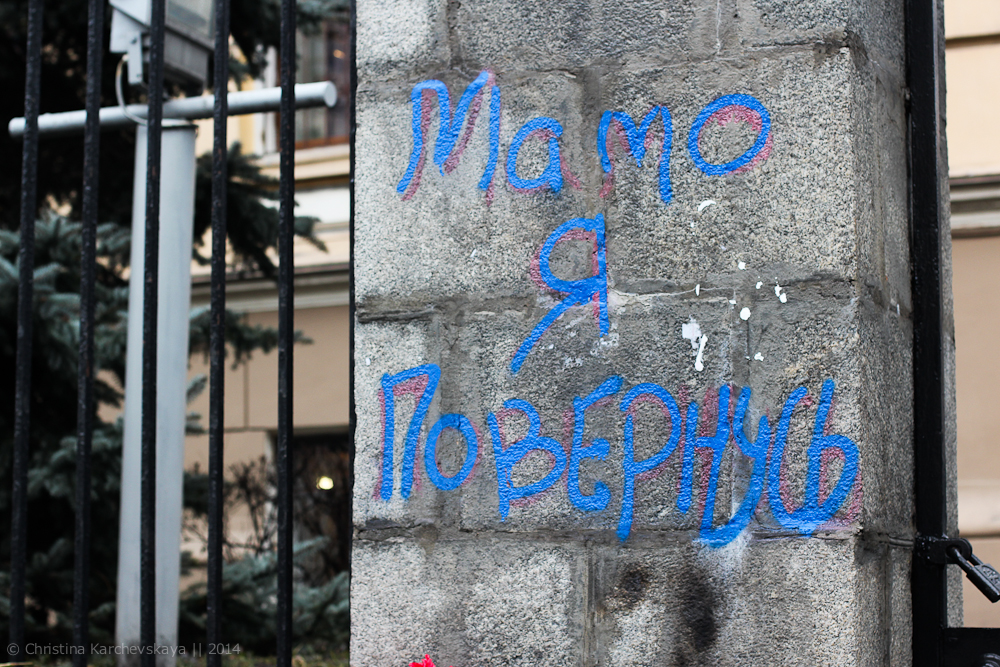 Мамо
Я
Повернусь
© Christina Karchevskaya || 2014